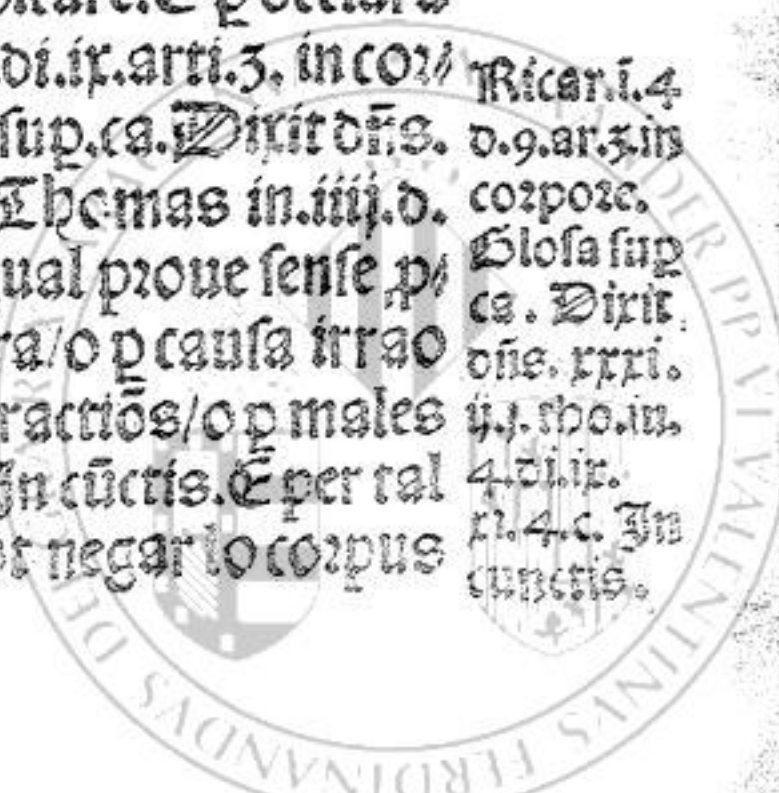 di.ix.arti.3. in cor⸗
sup.ca. Dixit dñs.
Thomas in.iiij.d.
ual proue sense p⸗
ra/o ꝑ causa irrao
ractiõs/o ꝑ males
In cũctis. E per tal
negar lo corpus
Ricar.ĩ.4
d.9.ar.3.in
corpore.
Glosa sup
ca. Dixit
dñs. xxxi.
ij.j. tho.in.
4.di.ix.
xi.4.c. In
cunctis.
FERDINANDVS
VALENTINVS
PP VI